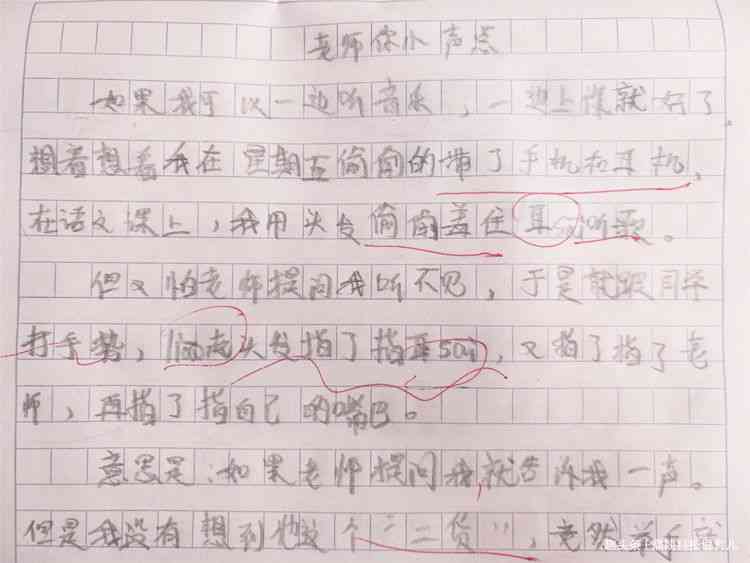 老师你小声点
如果我可以一边听音乐，一边上课就好了
想着想着我在星期五偷偷的带了手机和耳机，
在语文课上，我用头发偷偷盖住耳 听歌。
但又怕老师提问我听不见，于是就跟同学
打手势， 头发指了指耳 ，又指了指了老
师，再指了指自己的嘴巴。
意思是：如果老师提问我，就告诉我一声。
但是我没有想到他这个“二货”，竟然